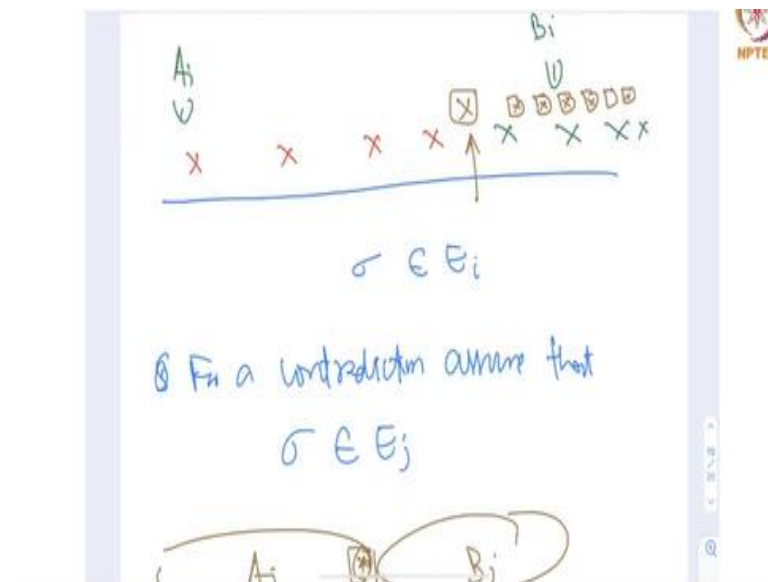 Bi
Ai
NPTE
x x x x x x x x x
σ ∈ Ei
For a contradiction assume that
σ ∈ Ej
Aj x Bj